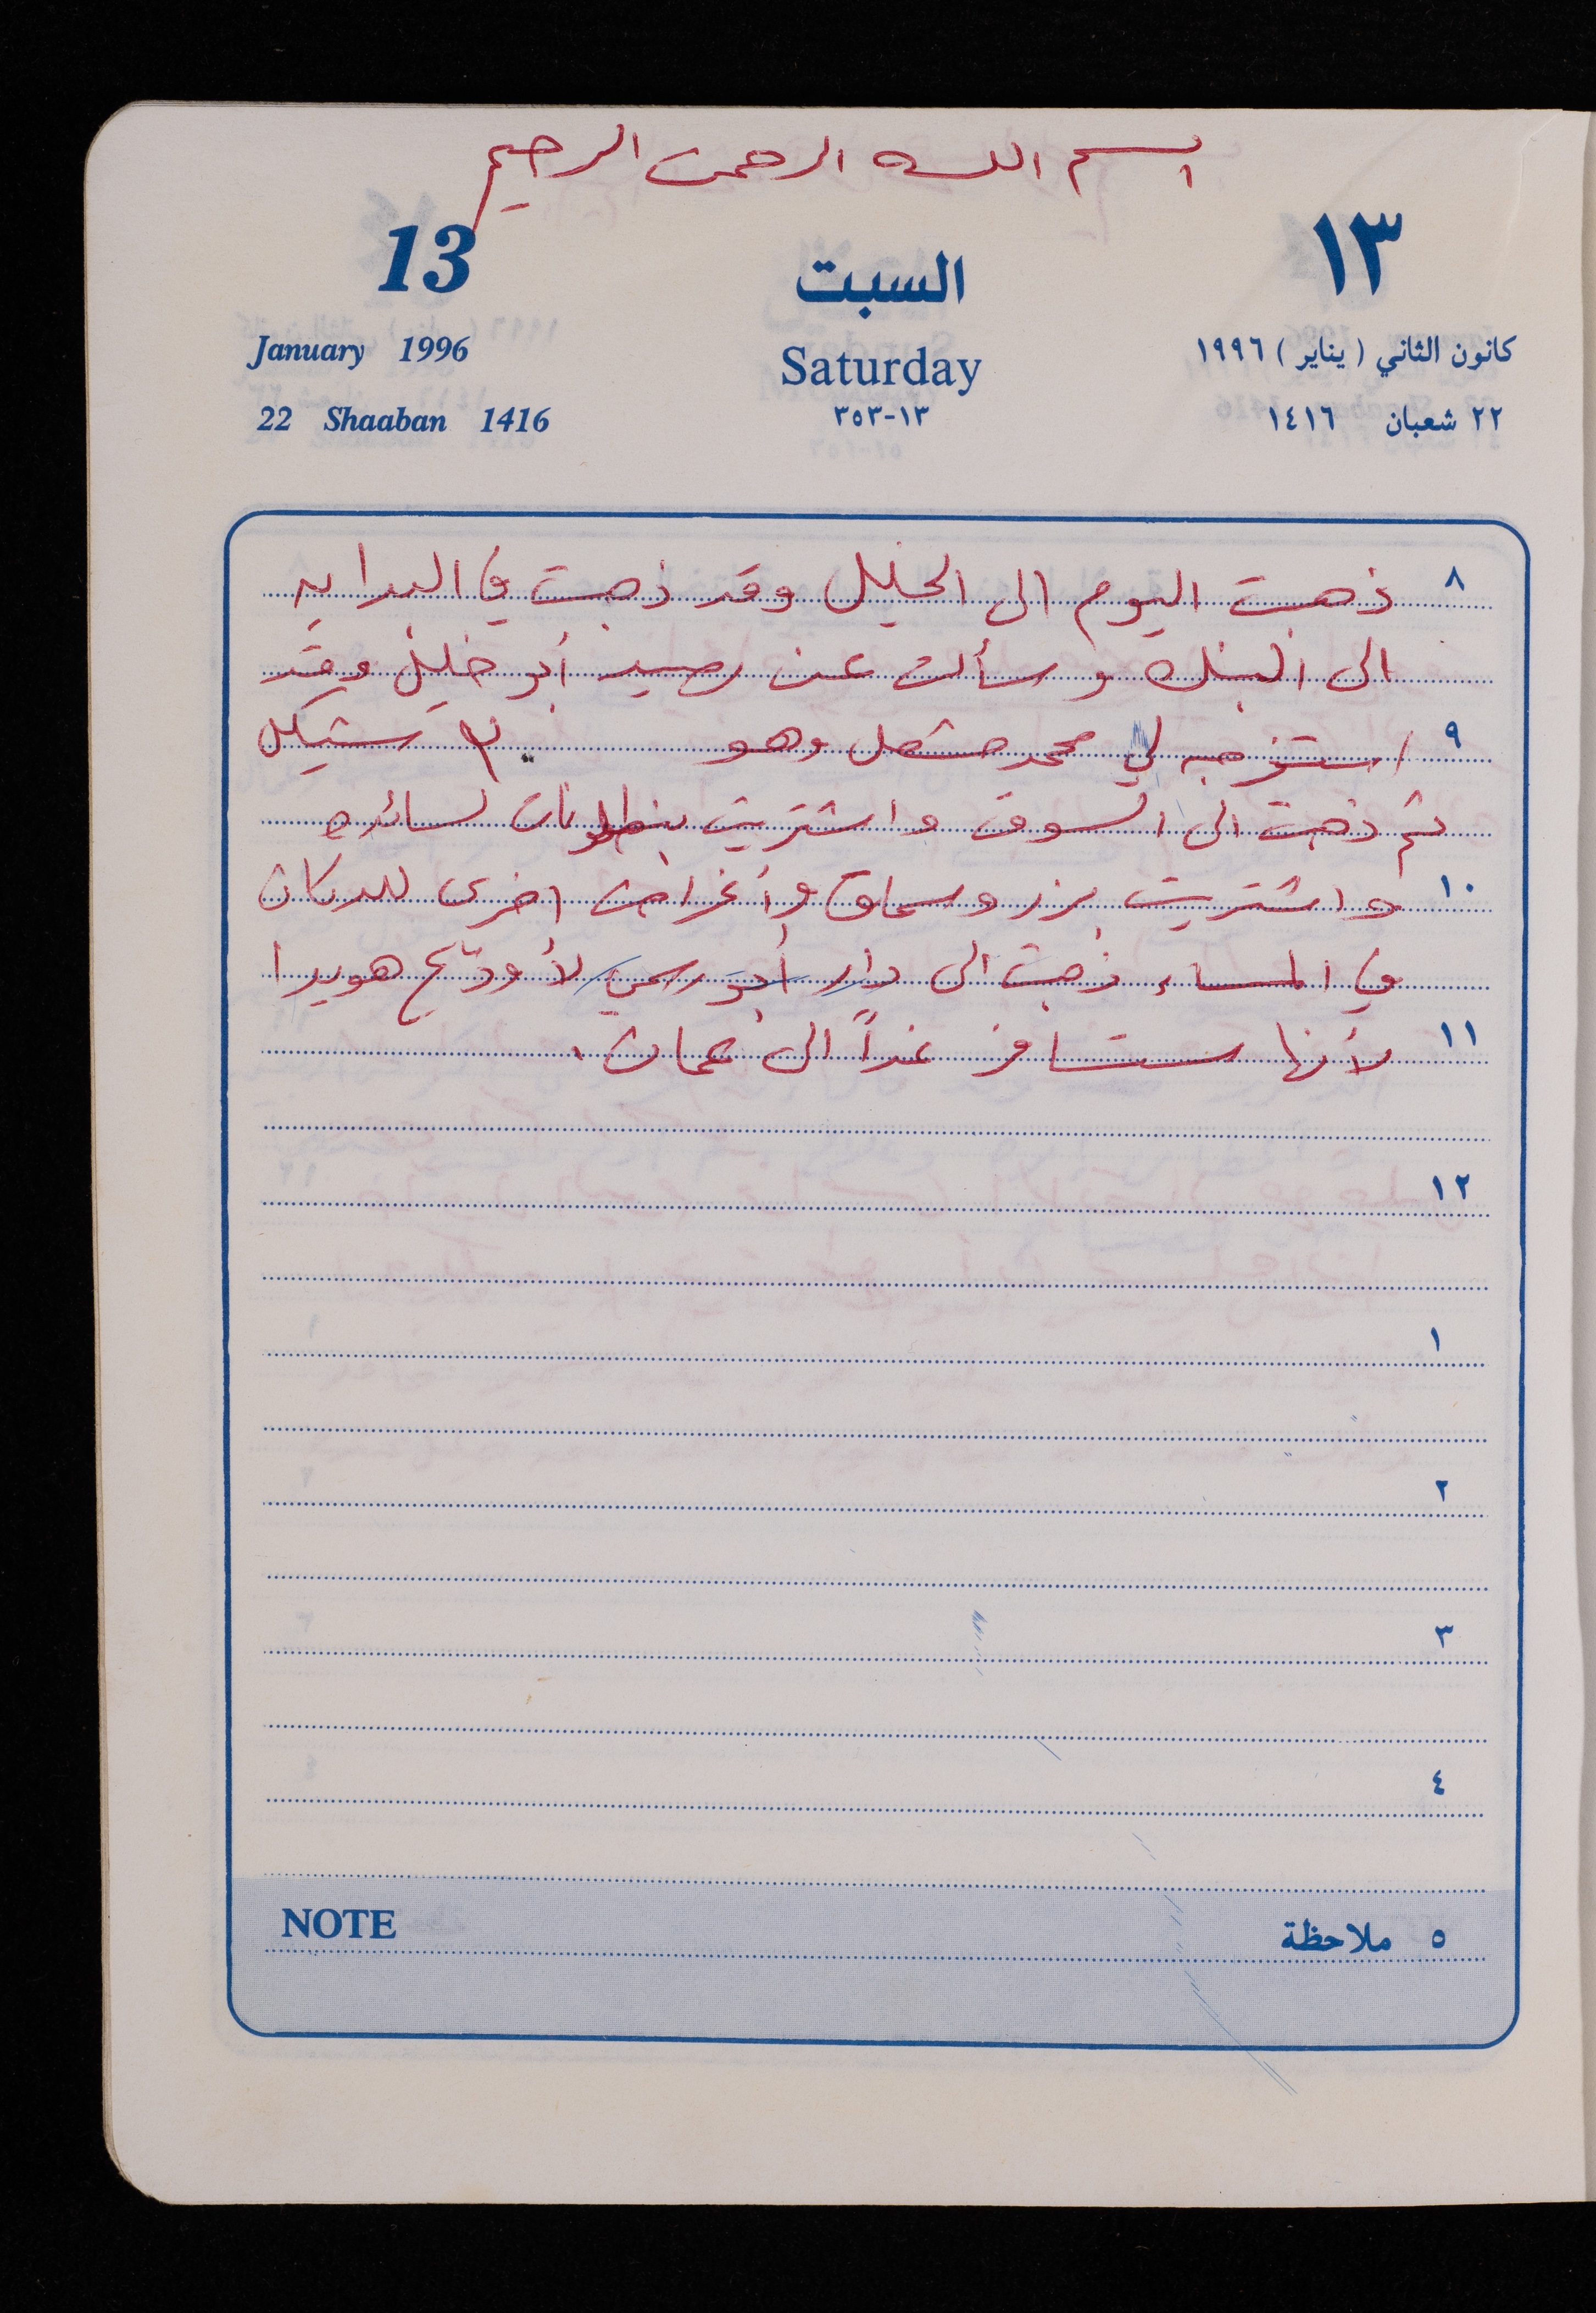 بسم الله الرحمن الرحيم
13 السبت ١٣
January 1996 Saturday كانون الثاني (يناير) ١٩٩٦
22 Shaaban 1416 ٣٥٣-١٣ ٢٢ شعبان ١٤١٦
٨ ذهبت اليوم الى الخليل وقد ذهبت في البدايه
الى البنك وسألت عن رصيد أبو خليل وقد
٩ استخرجه لي محمد مشعل وهو ٣٠ شيكل
ثم ذهبت الى السوق واشتريت بنطلونات لسائده
١٠ واشتريت بزر وسماق وأغراض اخرى للدكان
في المساء ذهبت الى دار أبو رسمي لأودّع هويدا
١١ لأنها ستسافر غداً الى عمان.
١٢
١
٢
٣
٤
NOTE ٥ ملاحظة